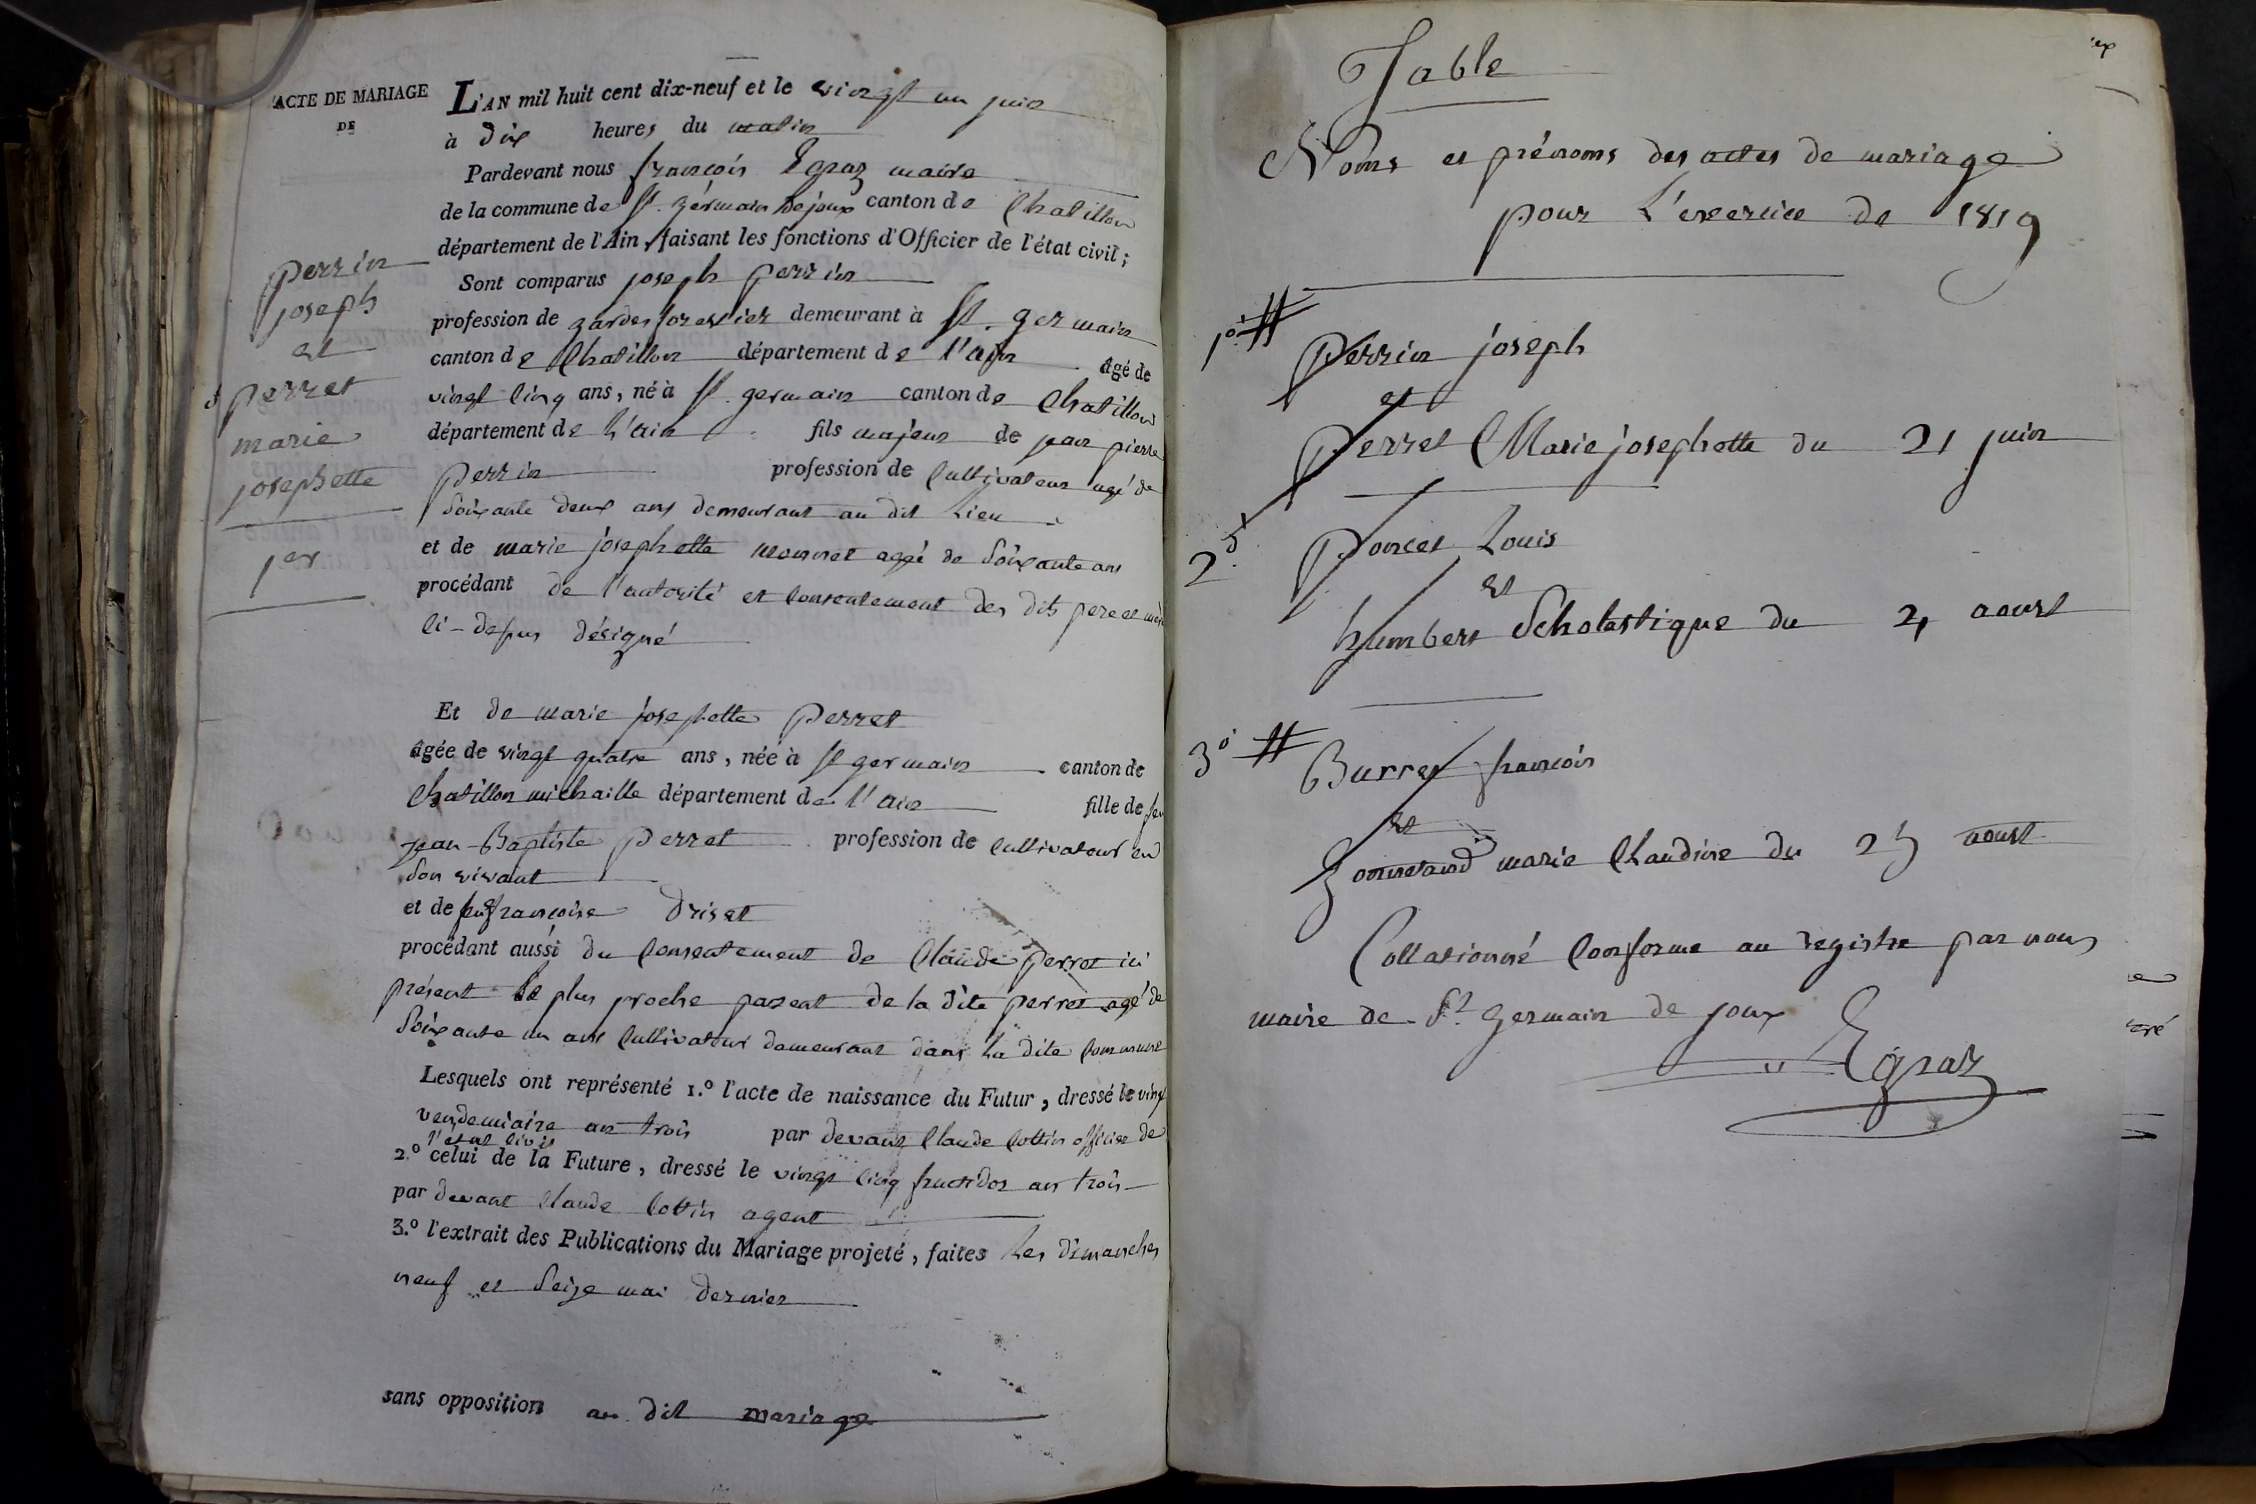 ACTE DE MARIAGE
DE
perrin
joseph
et
perret
marie
josephette
1er
L'AN mil huit cent dix-neuf et le vingt un juin
à dix heures du matin
Pardevant nous françois Egraz maire
de la commune de St. germain de joux canton de Chatillon
département de l'Ain, faisant les fonctions d'Officier de l'état civil;
Sont comparus joseph perrin
profession de gardes forestier demeurant à St. germain
canton de Chatillon département de l'ain âgé de
vingt cinq ans, né à St. germain canton de Chatillon
département de L'ain fils majeur de jean pierre
perrin profession de Cultivateur agé de
Soixante deux ans demeurant au dit Lieu
et de marie josephette monnet agée de Soixante ans
procédant de l'autorité et consentement des dits pere et mère
ci-dessus désigné
Et de marie josephette perret
âgée de vingt quatre ans, née à St germain canton de
Chatillon michaille département de l'ain fille de feu
jean Baptiste perret profession de Cultivateur en
Son vivant
et de feu françoise Driset
procédant aussi du Consentement de Claude perret ici
présent le plus proche parent de la dite perret agé de
Soixante un ans Cultivateur demeurant dans la dite Commune
Lesquels ont représenté 1.º l'acte de naissance du Futur, dressé le vingt
vendemiaire an trois par devant Claude Cottin officier de
l'etat civil
2.º celui de la Future, dressé le vingt cinq fructidor an trois
par devant Claude Cottin agent
3.º l'extrait des Publications du Mariage projeté, faites Les dimanches
neuf et Seize mai dernier
sans opposition au dit mariage
Table
Noms et prénoms des actes de mariage
pour L'exercice de 1819
1º # Perrin joseph
et
Perret Marie josephette du 21 juin
2º Poncet Louis
et
humbert Scholastique du 2, aoust
3º # Burret françois
et
marie Claudine du 25 aoust
Collationné Conforme au registre par nous
maire de St germain de joux
Egraz